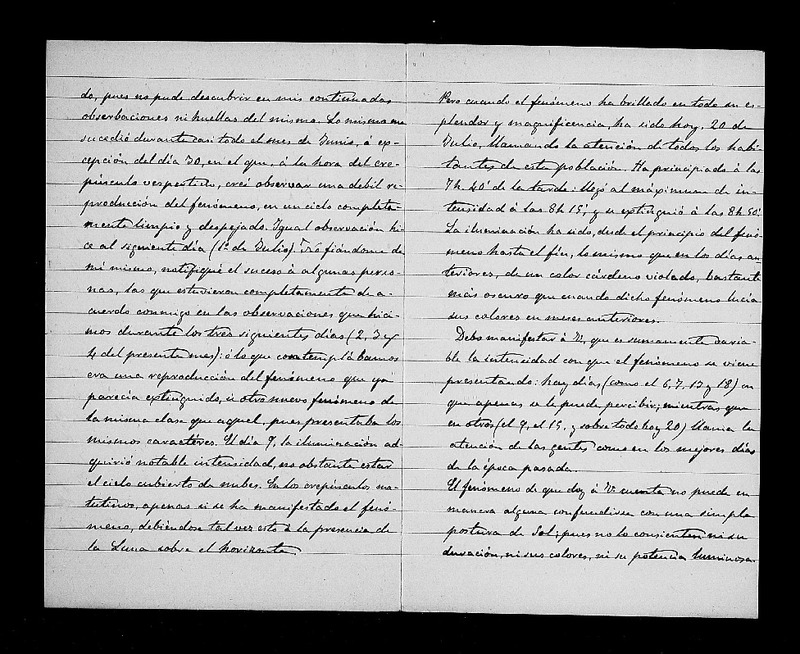 do, pues no pude descubrir en mis continuadas
observaciones ni huellas del mismo. Lo mismo me
sucedió durante casi todo el mes de Junio, á ex-
cepción del día 30, en el que, á la hora del cre-
púsculo vespertino, creí observar una débil re-
producción del fenómeno, en un cielo completa-
mente limpio y despejado. Igual observación hi-
ce al siguiente día (1º de Julio). No fiándome de
mi mismo, notifiqué el suceso á algunas perso-
nas, las que estuvieron completamente de a-
cuerdo conmigo en las observaciones que hici-
mos durante los tres siguientes días (2, 3 y
4 del presente mes): ó lo que contemplábamos
era una reproducción del fenómeno que ya
parecía extinguido, ú otro nuevo fenómeno de
la misma clase que aquel, pues presentaba los
mismos caractéres. El día 9, la iluminación ad-
quirió notable intensidad, no obstante estar
el cielo cubierto de nubes. En los crepúsculos ma-
tutinos, apenas si se ha manifestado el fenó-
meno, debiéndose tal vez esto á la presencia de
la Luna sobre el horizonte.
Pero cuando el fenómeno ha brillado en todo su es-
plendor y magnificencia, ha sido hoy, 20 de
Julio, llamando la atención de todos los habi-
tantes de esta población. Ha principiado á las
7h. 40' de la tarde: llegó al máximum de in-
tensidad á las 8h 15', y se extinguió á las 8h. 50'.
La iluminación ha sido, desde el principio del fenó-
meno hasta el fin, lo mismo que en los días an-
teriores, de un color cárdeno violado, bastante
más oscuro que cuando dicho fenómeno lucía
sus colores en meses anteriores.
Debo manifestar á V. que es sumamente varia-
ble la intensidad con que el fenómeno se viene
presentando: hay días (como el 6, 7, 17 y 18) en
que apenas se le puede percibir; mientras que
en otros (el 9, el 15, y sobre todo hoy 20) llama la
atención de las gentes como en los mejores días
de la época pasada.
El fenómeno de que doy á V. cuenta no puede en
manera alguna confundirse con una simple
postura de Sol; pues no lo consienten ni su
duración, ni sus colores, ni su potencia luminosa.